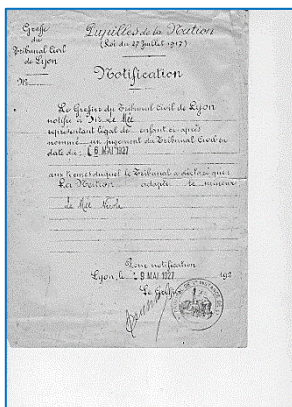 Greffe
du
Tribunal Civil
de Lyon
M
Pupilles de la Nation
(Loi du 27 Juillet 1917)
Notification
Le Greffier du Tribunal Civil de Lyon
notifie à Mr Le Mée
représentant légal de enfant ci-après
nommé un jugement du Tribunal Civil en
date du: 6 MAI 1927
aux termes duquel le Tribunal a déclaré que:
La Nation adopte le mineur
Le Mée
Pour notification
Lyon, le 9 MAI 1927 192
Le Greffier